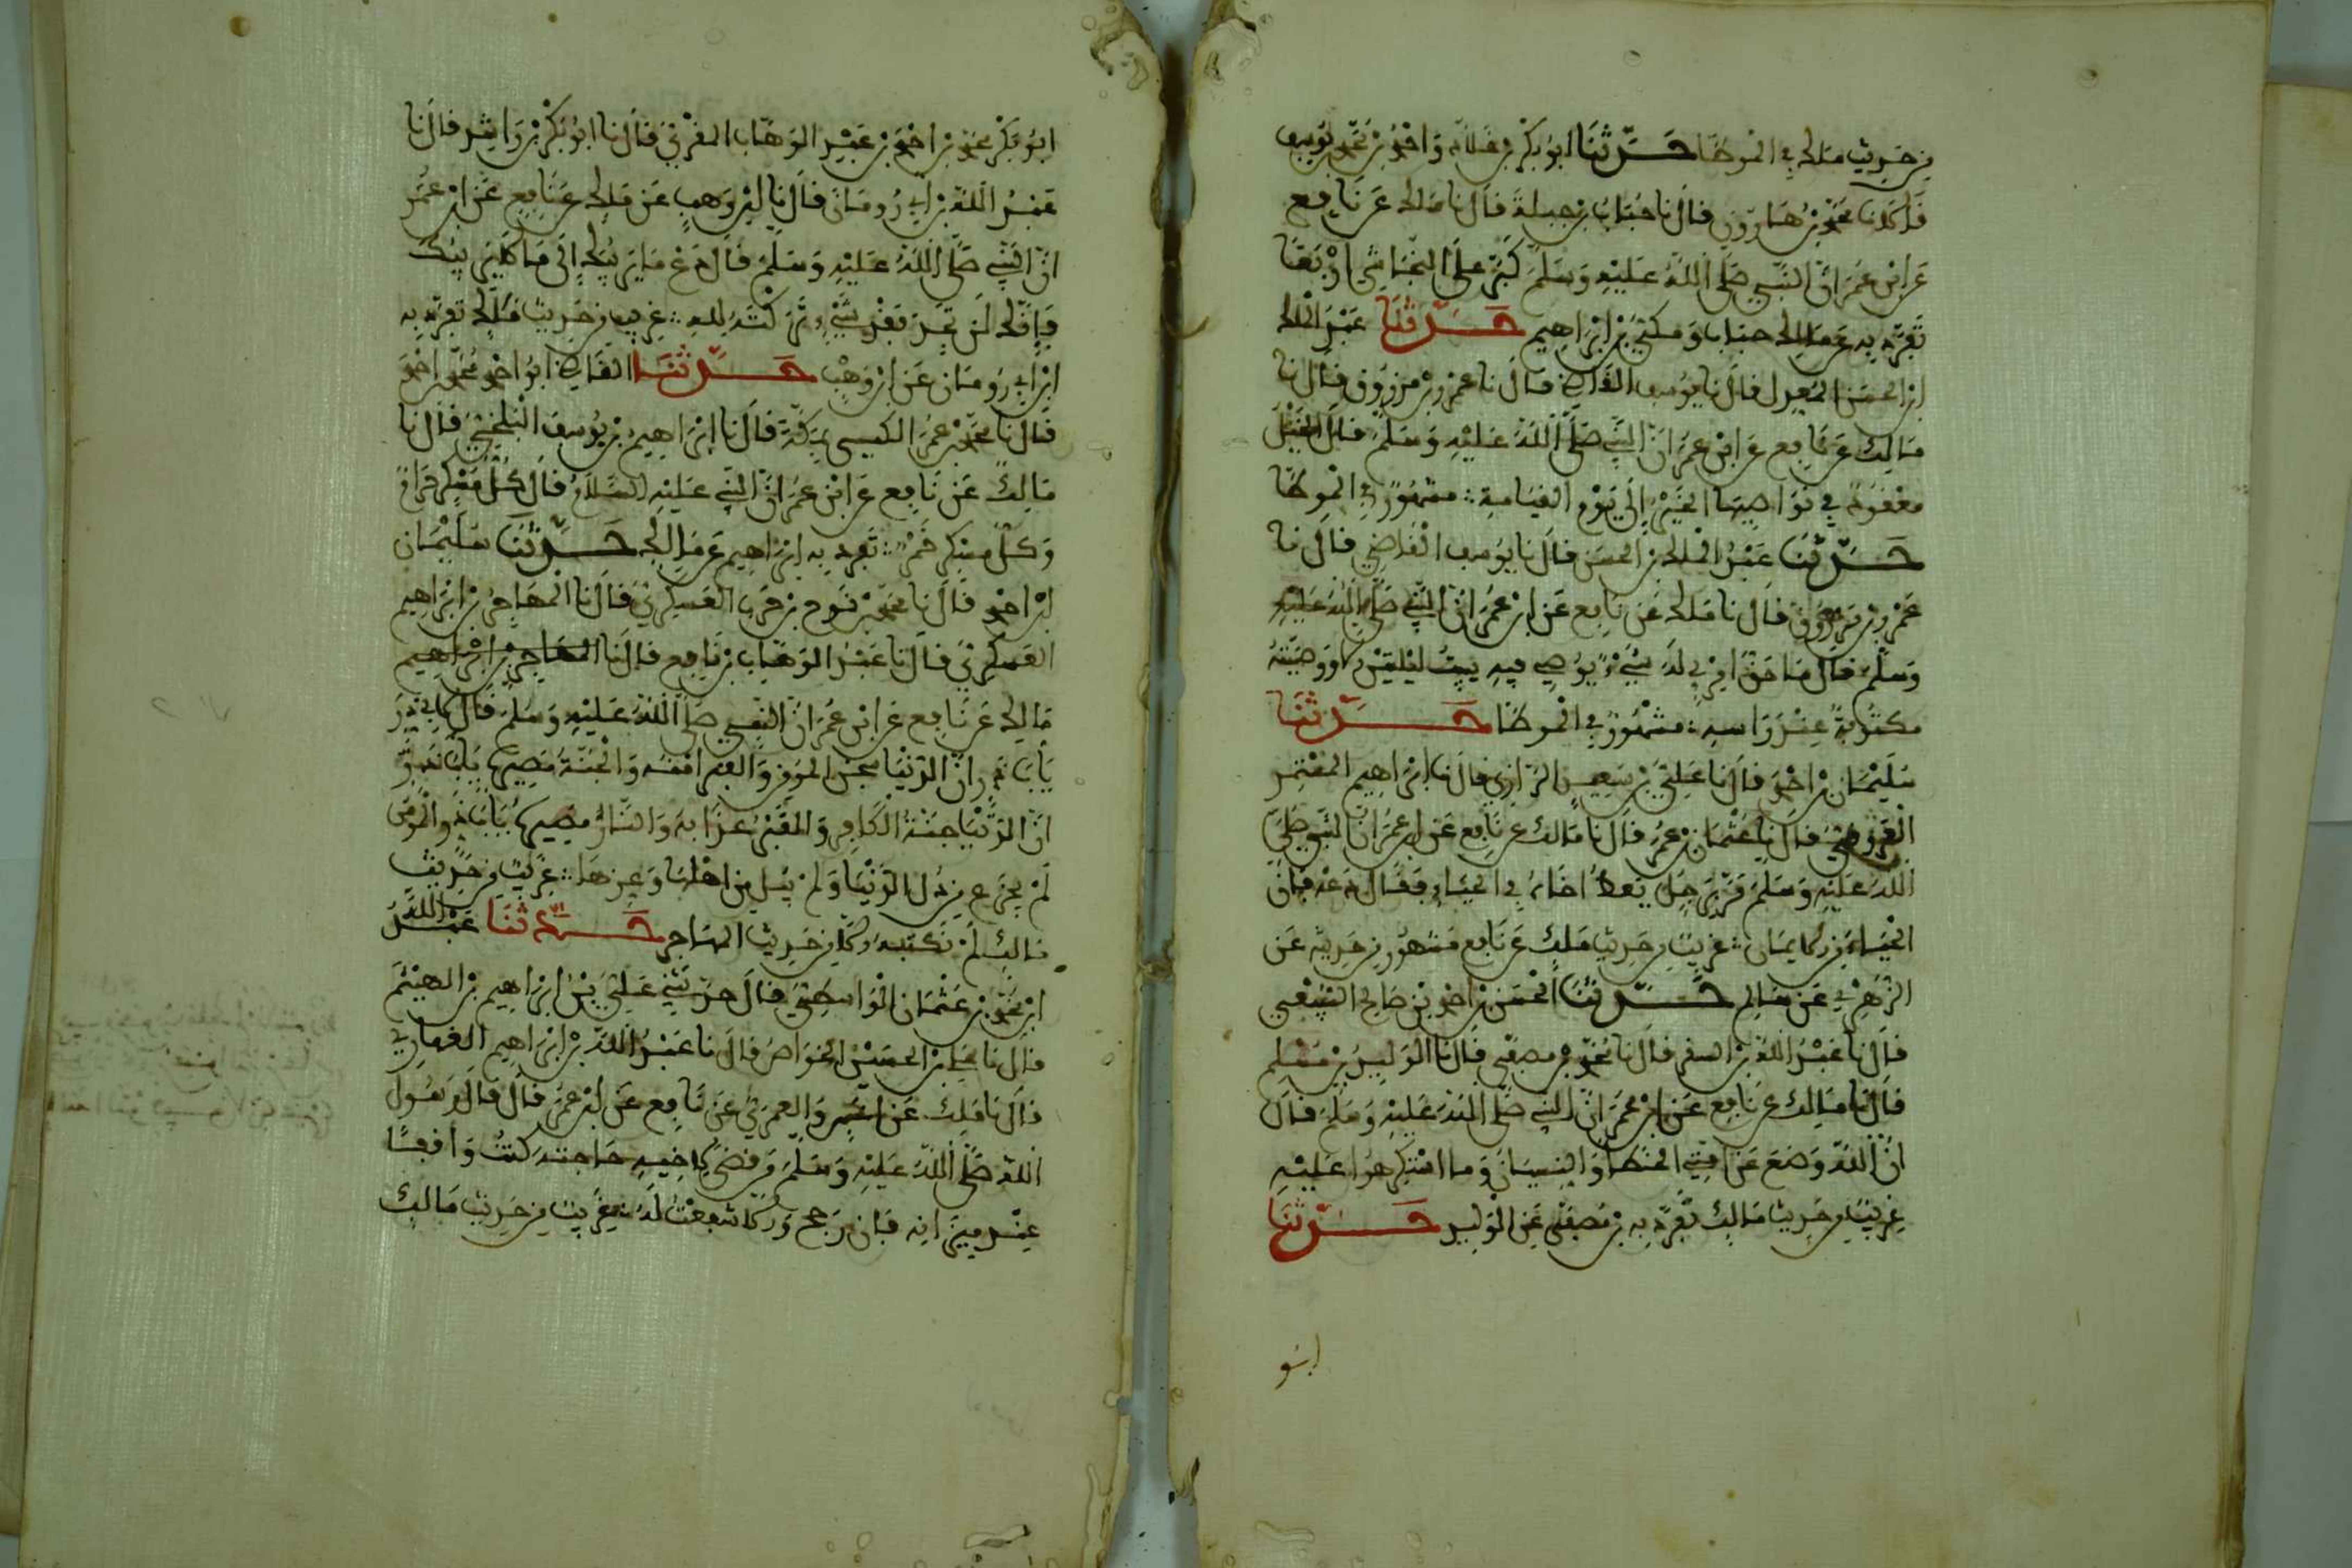 من حديث مالك في الموطا حدثنا ابو بكر بن خلاد واحمد بن محمد بن يوسف
قالا نا محمد بن هارون قال نا حباب بن جبلة قال نا مالك عن نافع
عن ابن عمر ان النبي صلى الله عليه وسلم كبر على النجاشي اربعا
تفرد به عن مالك حباب ومكي بن ابراهيم حدثنا عبد الملك
ابن الحسن المعدل قال نا يوسف القاضي قال نا عمرو بن مرزوق قال نا
مالك عن نافع عن ابن عمر ان النبي صلى الله عليه وسلم قال الخيل
معقود في نواصيها الخير الى يوم القيامة مشهور في الموطا
حدثنا عبد الملك بن الحسن قال نا يوسف القاضي قال نا
عمرو بن مرزوق قال نا مالك عن نافع عن ابن عمر ان النبي صلى الله عليه
وسلم قال ما حق امرئ له شيء يوصي فيه يبيت ليلتين الا ووصيته
مكتوبة عند راسه مشهور في الموطا حدثنا
سليمان بن احمد قال نا علي بن سعيد الرازي قال نا ابراهيم المعتمر
العروقي قال نا عثمان بن عمر قال نا مالك عن نافع عن ابن عمر ان النبي صلى
الله عليه وسلم مر برجل يعظ اخاه في الحياء فقال دعه فان
الحياء من الايمان غريب من حديث مالك عن نافع مشهور من حديثه عن
الزهري عن سالم حدثنا الحسن بن احمد بن صالح السبيعي
قال نا عبد الله بن السفر قال نا محمد بن مصفى قال نا الوليد بن مسلم
قال نا مالك عن نافع عن ابن عمر ان النبي صلى الله عليه وسلم قال
ان الله وضع عن امتي الخطا والنسيان وما استكرهوا عليه
غريب من حديث مالك تفرد به بن مصفى عن الوليد حدثنا
ابو
ابو بكر محمد بن احمد بن عبد الوهاب المقرئ قال نا ابو بكر بن راشد قال نا
عبد الله بن ابي رومان قال نا ابن وهب عن مالك عن نافع عن ابن عمر
ان النبي صلى الله عليه وسلم قال دع ما يريبك الى ما لا يريبك
فانك لن تجد فقد شيء تركته لله غريب من حديث مالك تفرد به
ابن ابي رومان عن ابن وهب حدثنا القاضي ابو احمد محمد بن احمد
قال نا محمد بن عمر الكيسي بمكة قال نا ابراهيم بن يوسف البلخي قال نا
مالك عن نافع عن ابن عمر ان النبي عليه السلام قال كل مسكر حرام
وكل مسكر خمر تفرد به ابراهيم عن مالك حدثنا سليمان
ابن احمد قال نا محمد بن نوح بن حرب العسكري قال نا المهاجر بن ابراهيم
العسكري قال نا عبد الوهاب بن نافع قال نا المهاجر بن ابراهيم
مالك عن نافع عن ابن عمر ان النبي صلى الله عليه وسلم قال لابي ذر
يابا ذر ان الدنيا سجن المومن والقبر امنه والجنة مصيره يابا ذر
ان الدنيا جنة الكافر والقبر عذابه والنار مصيره يابا ذر المومن
لم يجزع من ذل الدنيا ولم يبل من اهلها وعزها غريب من حديث
مالك لم نكتبه الا من حديث المهاجر حدثنا عبد الله
ابن محمد بن عثمان الواسطي قال حدثني علي بن ابراهيم بن الهيثم
قال نا الحسن الخواص قال نا عبد الله بن ابراهيم الغفاري
قال نا مالك عن العمري عن نافع عن ابن عمر قال قال رسول
الله صلى الله عليه وسلم من قضى لاخيه حاجته كنت واقفا
عند ميزانه فان رجح والا شفعت له غريب من حديث مالك